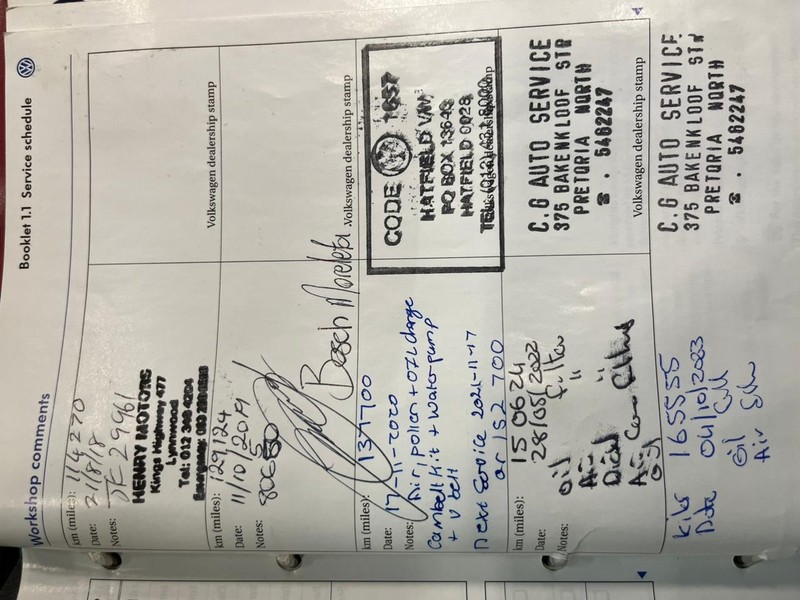 Booklet 1.1 Service schedule
Workshop comments
km (miles): 114270
Date: 21/8/18
Notes:
HENRY MOTORS
Kings Highway 477
Lynnwood
Tel: 012 300 4204
Volkswagen dealership stamp
km (miles): 129124
Date: 11/10/2019
Notes:
Bosch Moreleta
Volkswagen dealership stamp
km (miles): 137700
Date: 17-11-2020
Notes: Air, pollen + OIL change
Cambelt kit + Water-pump
+ V belt
Next Service 2021-11-17
or 152 700
CODE 1657
HATFIELD VW
PO BOX 13645
HATFIELD 0028
km (miles): 150624
Date: 28/05/2022
Notes:
Oil Filter
Air "
C.G AUTO SERVICE
375 BAKENKLOOF STR
PRETORIA NORTH
☎ . 5462247
Volkswagen dealership stamp
Kilos 165555
Date 04/10/2023
Oil
Air
C.G AUTO SERVICE.
375 BAKENKLOOF STR
PRETORIA NORTH
☎ . 5462247